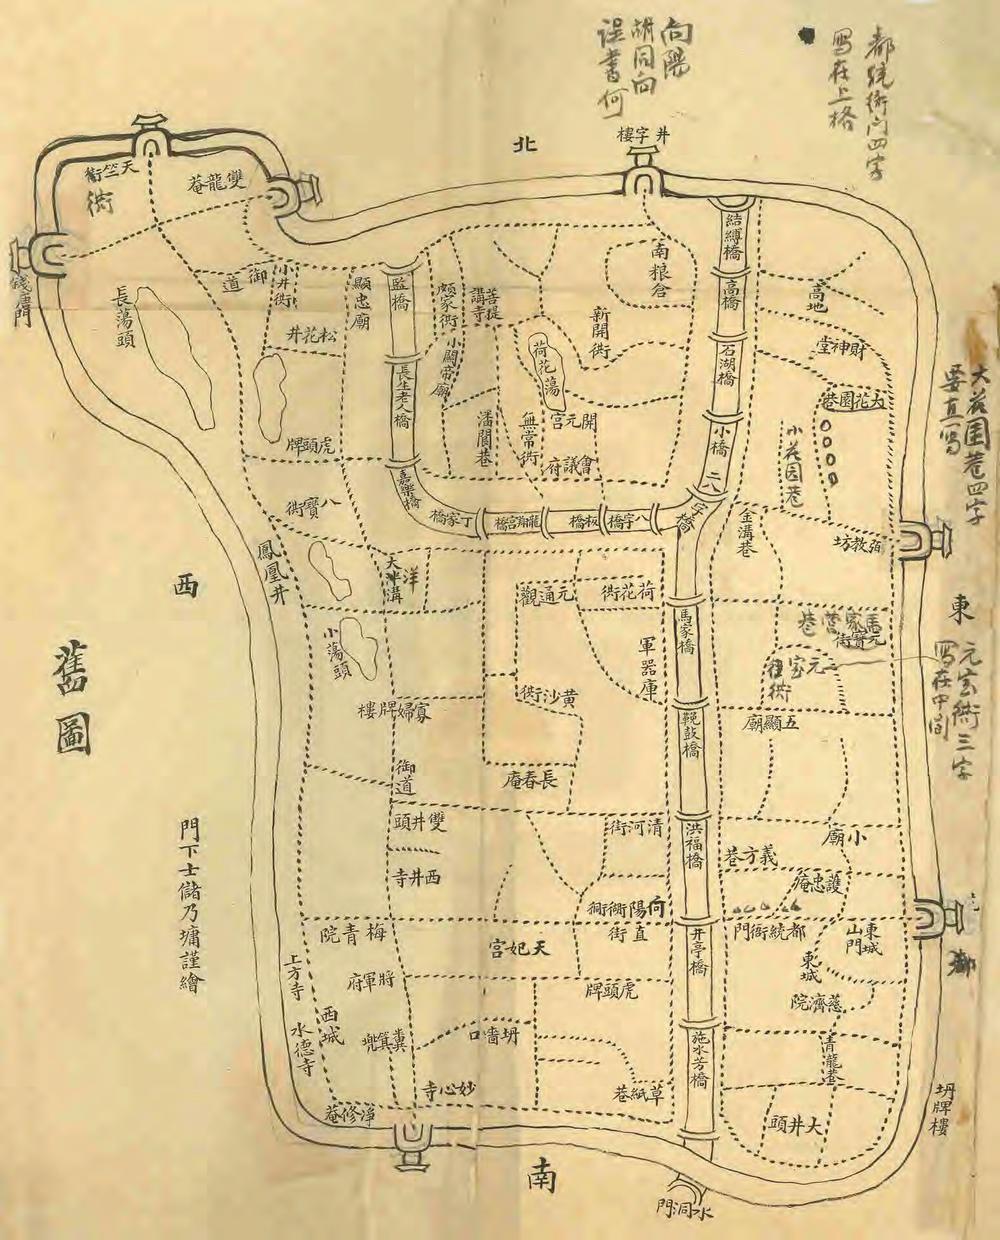 都統衙门四字
写在上格
向陽
胡同向
误書何
井字樓
北
天竺衖
衖
雙龍庵
錢唐門
長蕩頭
御道
小井衖
顯忠廟
松花井
虎頭牌
八寶衖
鳳凰井
監橋
長生老人橋
嘉樂橋
丁家橋
龍翔宮橋
板橋
八字橋
顧家衖
小關帝廟
菩提講寺
潘閬巷
荷花蕩
無常衖
開元宮
會議府
新開衖
南粮倉
結縛橋
高橋
石湖橋
小橋
二八字橋
高地
財神堂
大花園巷
小花园巷
大花園巷四字
要直写
金溝巷
弼教坊
西
東
舊圖
大泮溝
洋
小蕩頭
元通觀
荷花衖
軍器庫
黄沙衖
寡婦牌樓
御道
長春庵
雙井頭
西井寺
清河街
何陽衚衕
直街
馬家橋
鞔鼓橋
洪福橋
井亭橋
施水芳橋
馬家營巷
元寶街
元宝衖三字
写在中间
五顯廟
小廟
義方巷
護忠庵
都統衙門
東城山門
東城
慈濟院
青龍巷
大井頭
梅青院
天妃宮
將軍府
虎頭牌
上方寺
水德寺
西城
糞箕兠
坍牆口
草紙巷
妙心寺
淨修庵
坍牌樓
門下士儲乃墉謹繪
南
水洞門